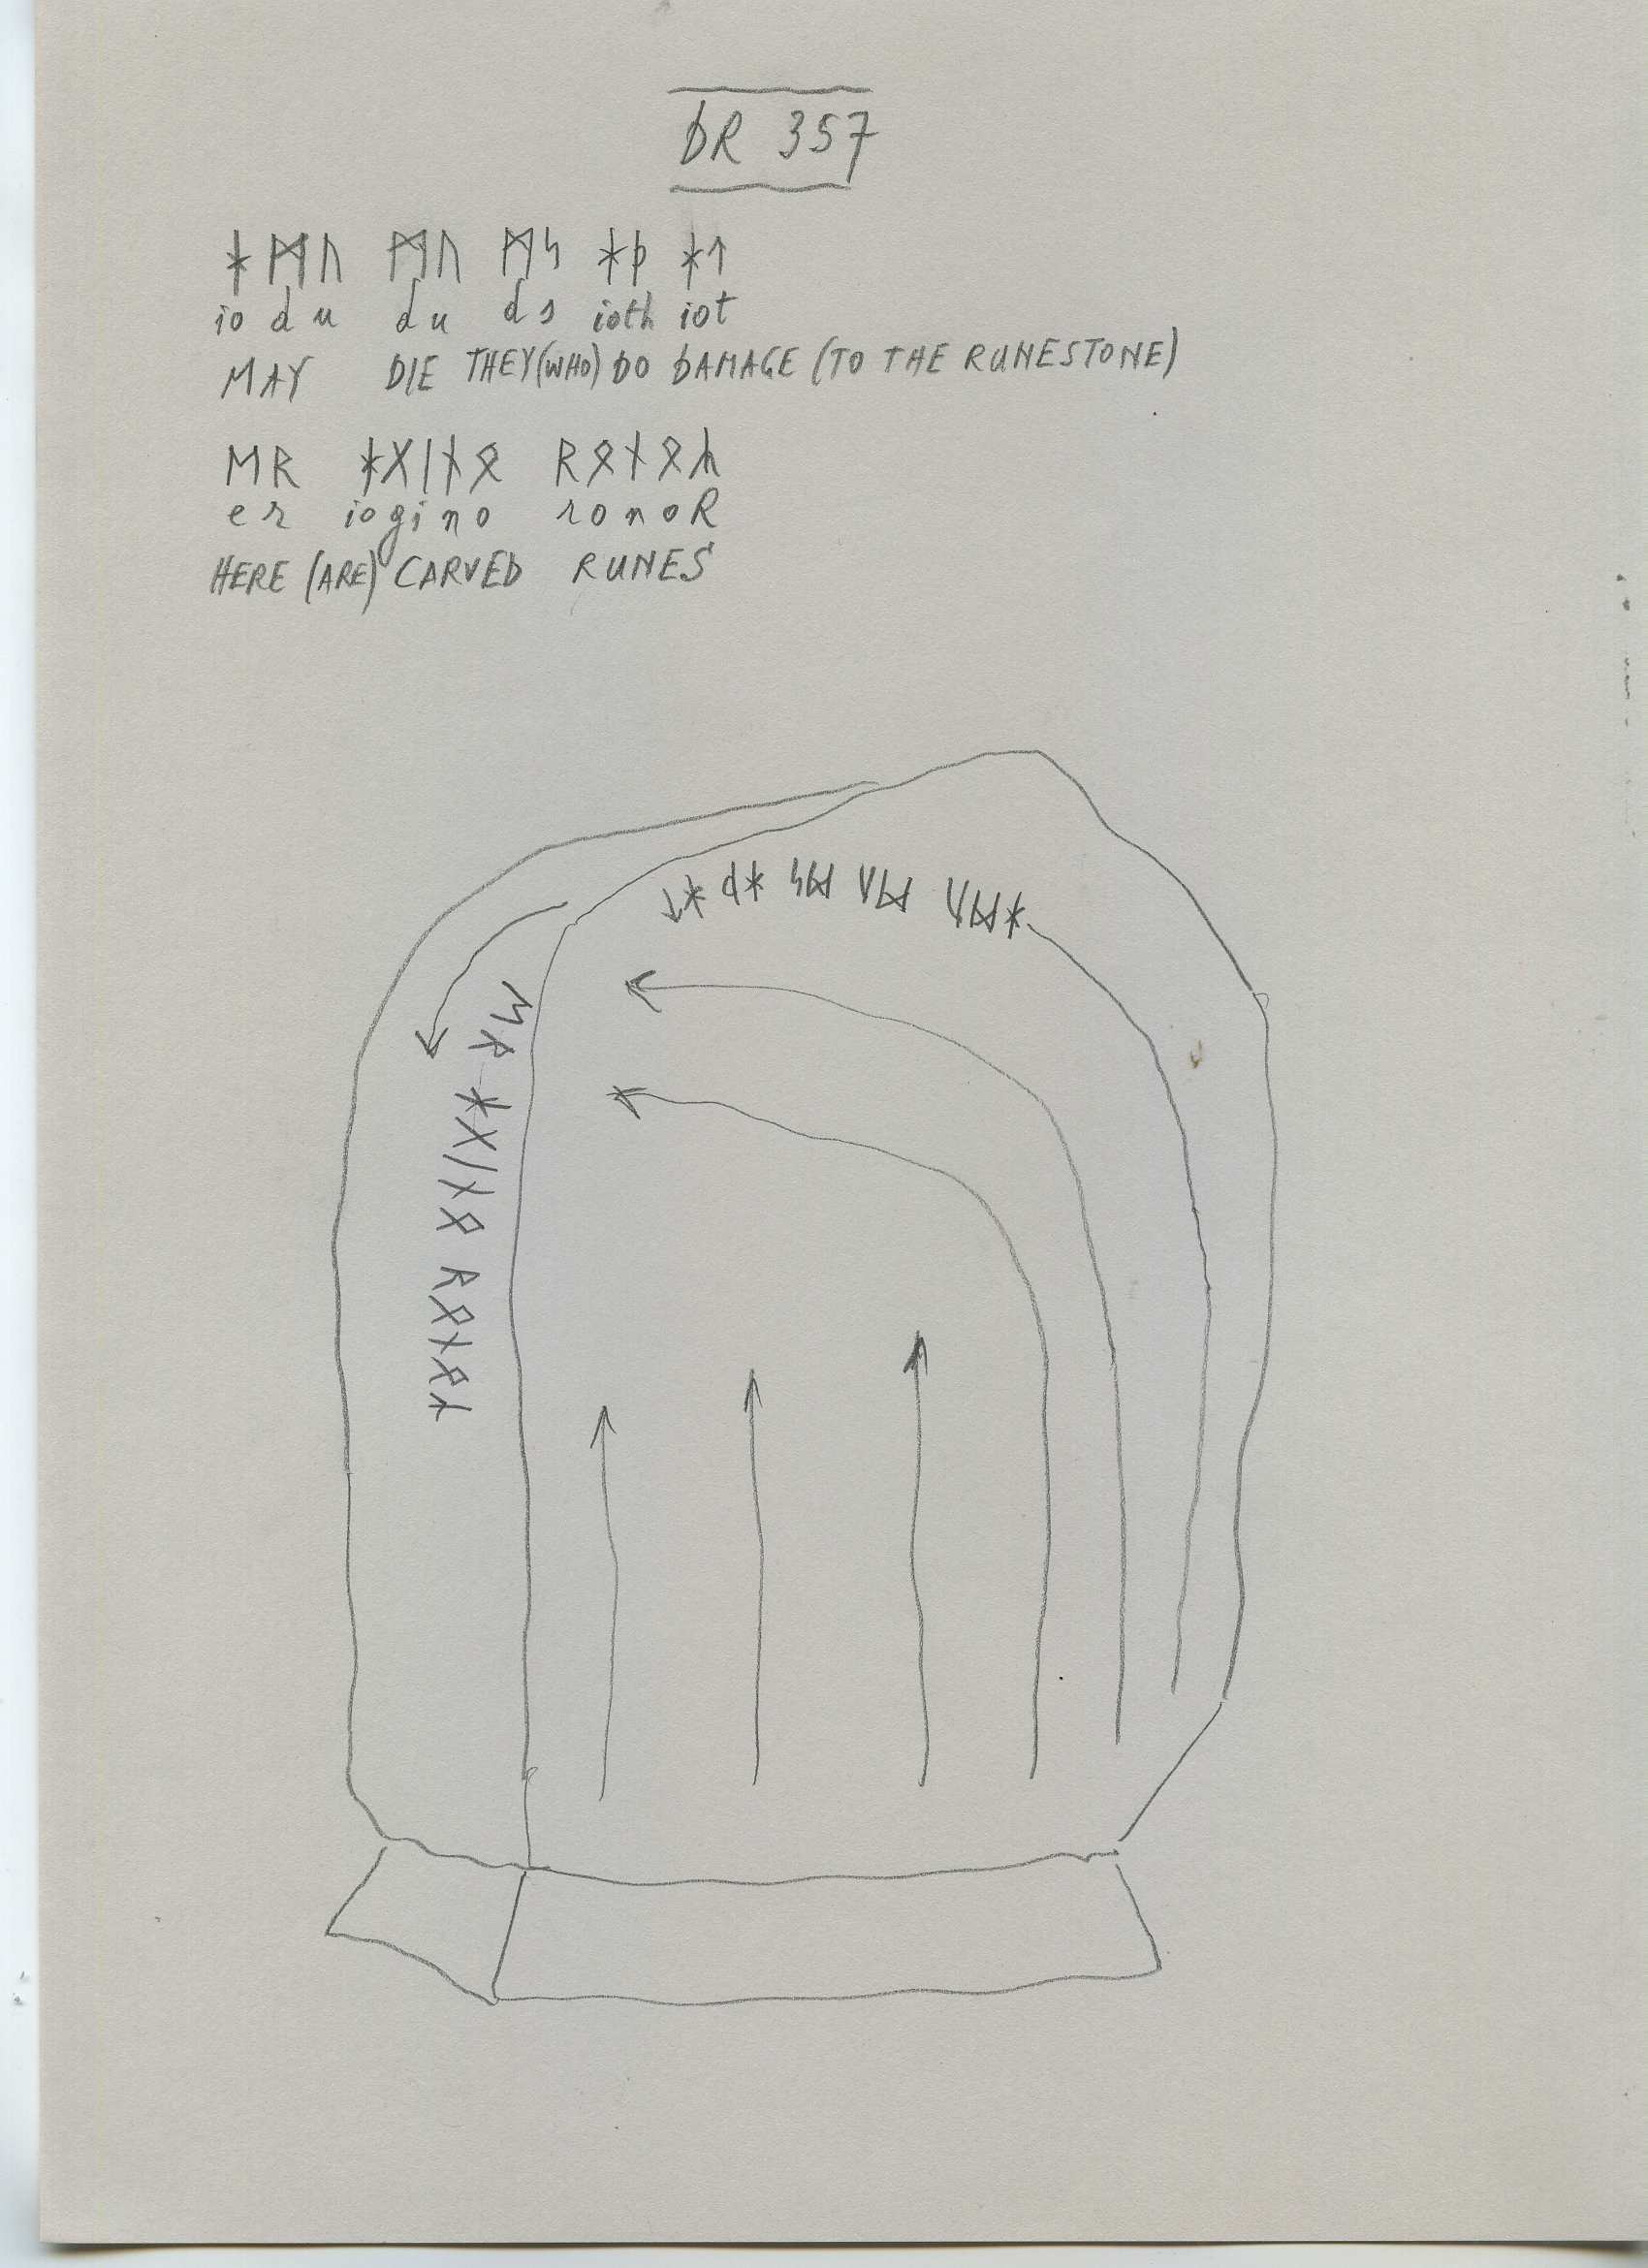 DR 357
ᛡ ᛞᚢ ᛞᚢ ᛞᛋ ᛡᚦ ᛡᛏ
io d u du ds ioth iot
MAY DIE THEY (WHO) DO DAMAGE (TO THE RUNESTONE)
ᛖᚱ ᛡᚷᛁᚾᛟ ᚱᛟᚾᛟᛦ
er iogino ronoR
HERE (ARE) CARVED RUNES
ᛡᛞᚢ ᛞᚢ ᛞᛋ ᛡᚦ ᛡᛏ
ᛖᚱ ᛡᚷᛁᚾᛟ ᚱᛟᚾᛟᛦ